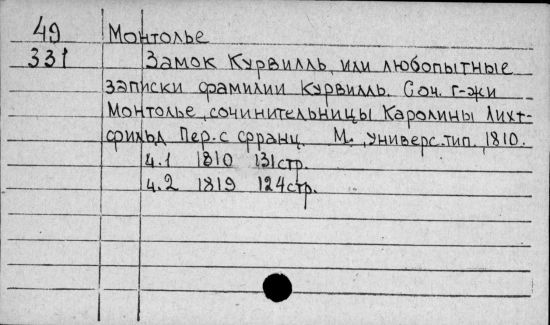 49 Монтолье
331 Замок Курвилль, или любопытные
записки фамилии Курвилль. Соч. г-жи
Монтолье, сочинительницы Каролины Лихт-
фильд Пер. с франц. М., Универс. тип. 1810.
ч.1 1810 131стр.
ч.2 1819 124стр.